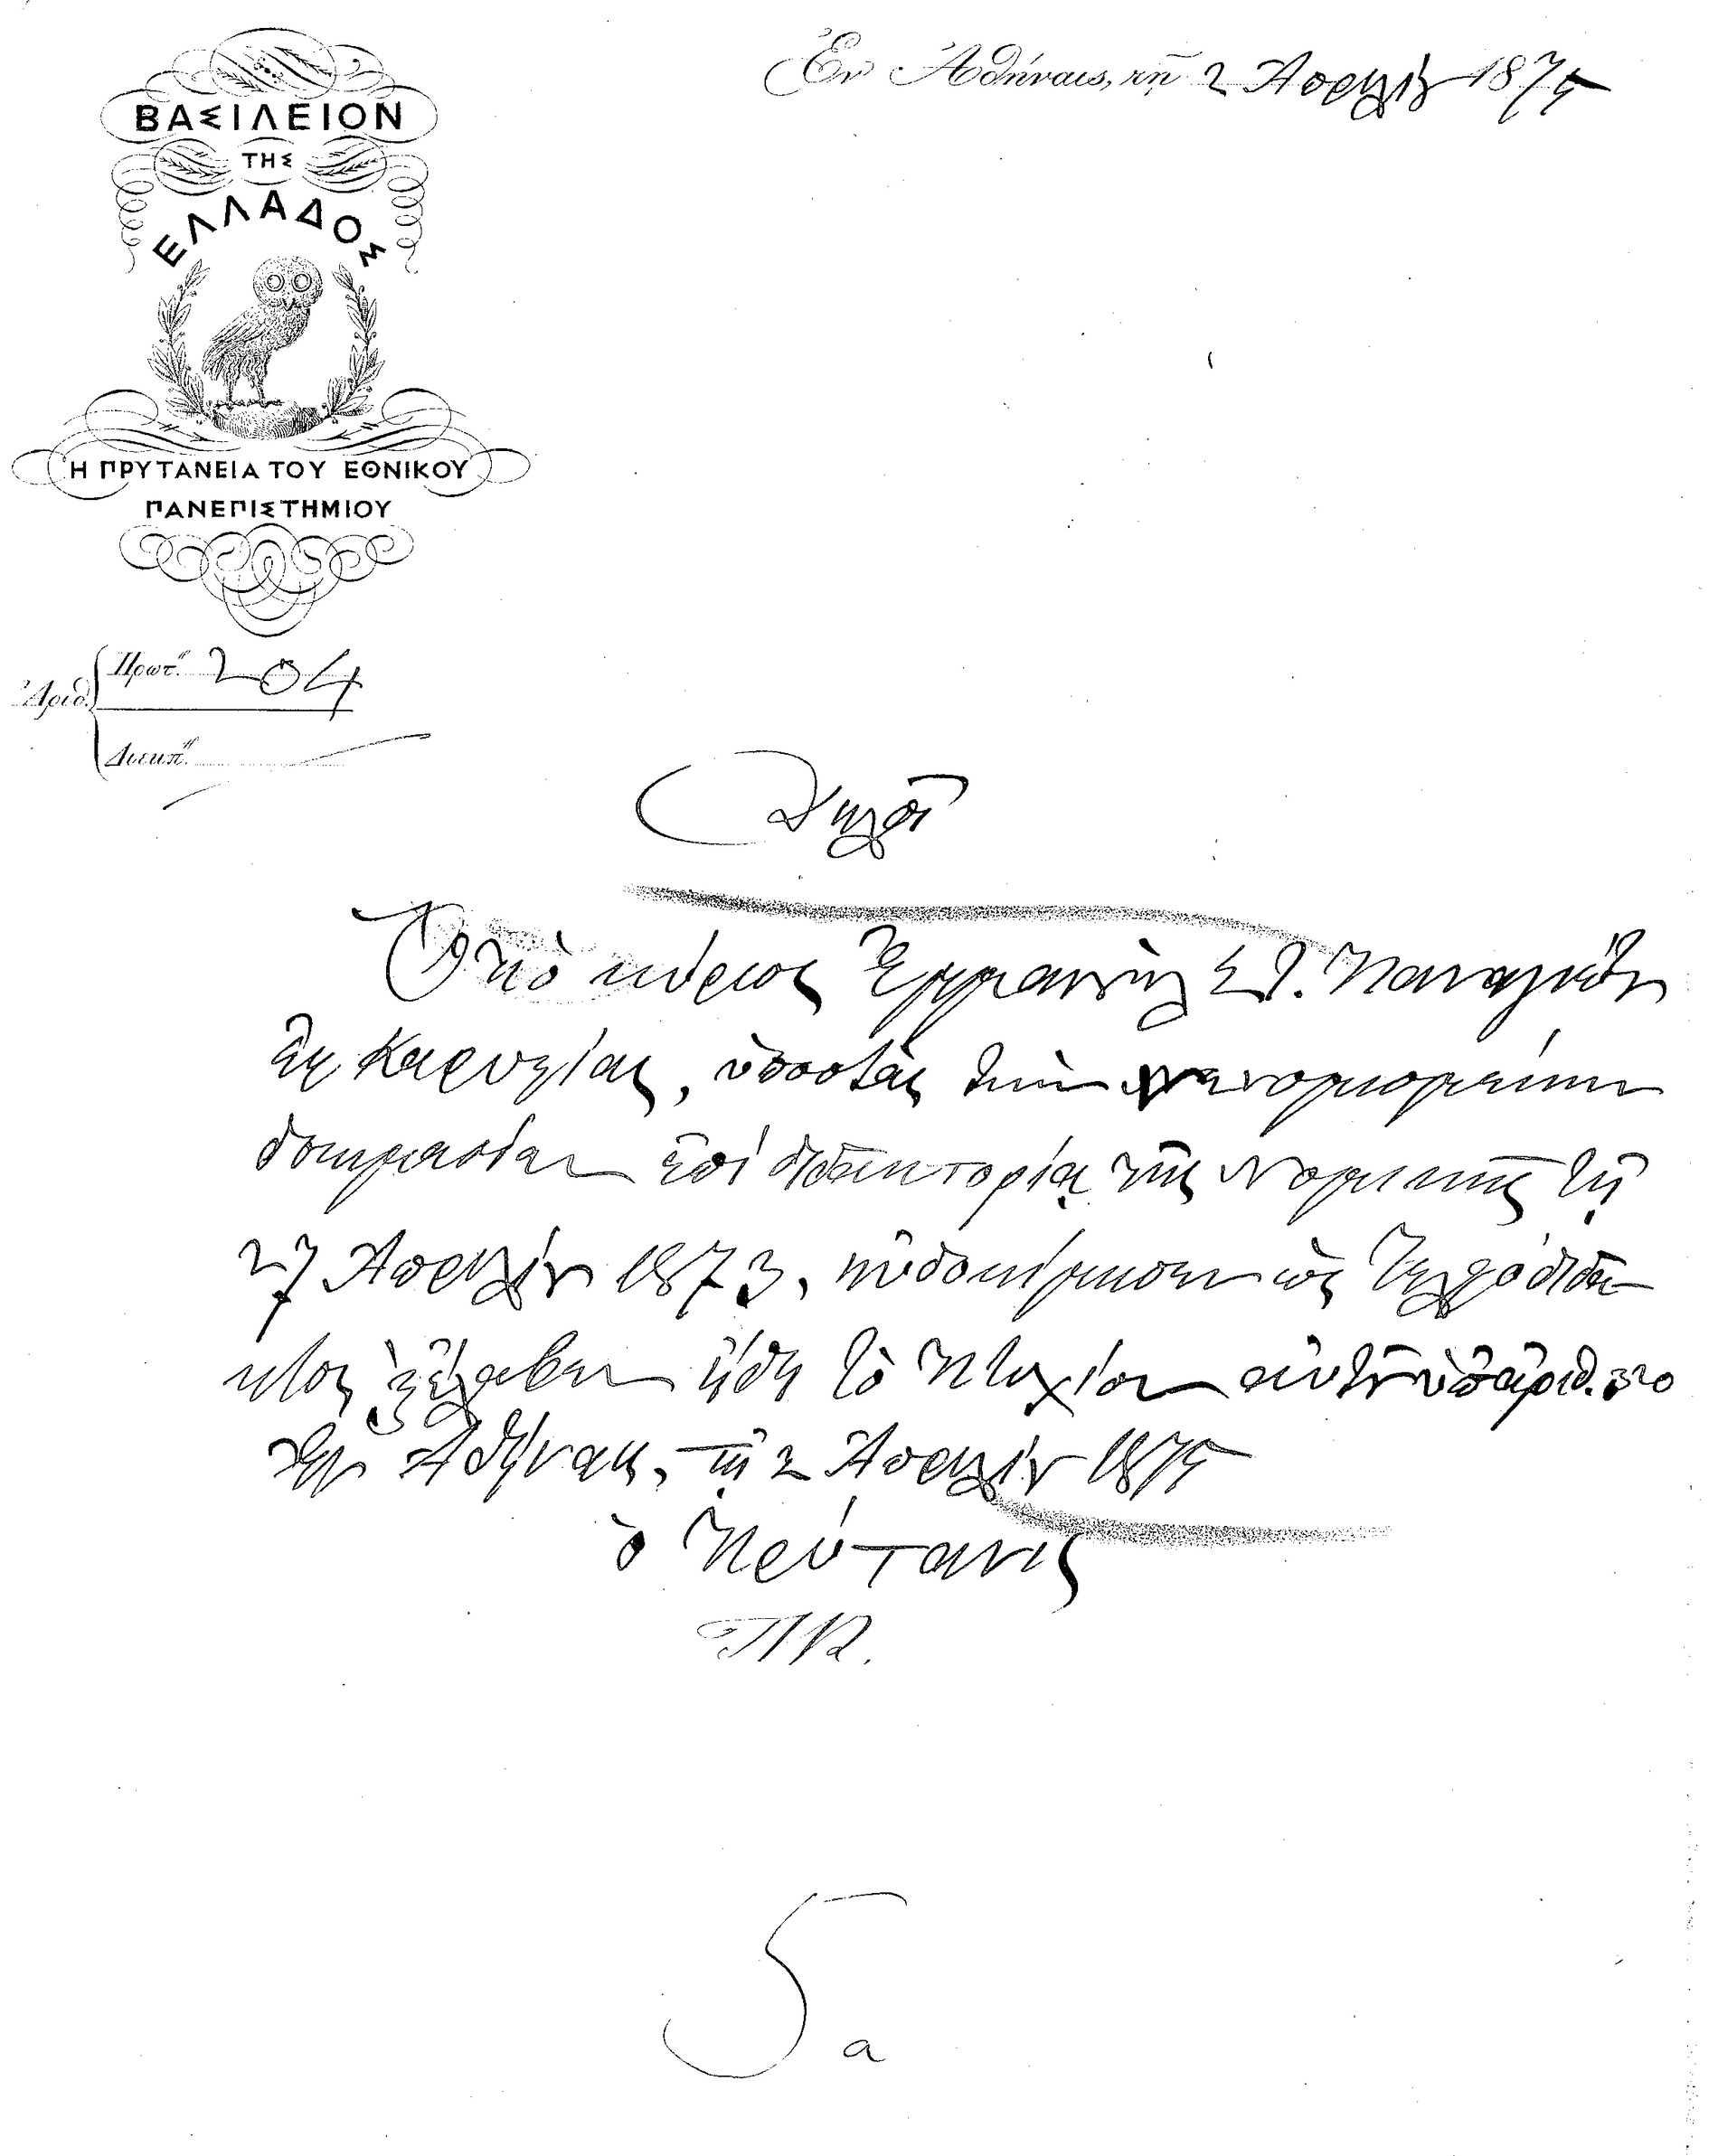 Ἐν Ἀθήναις, τῇ 2 Ἀπριλίου 1875
ΒΑΣΙΛΕΙΟΝ
ΤΗΣ
ΕΛΛΑΔΟΣ
Η ΠΡΥΤΑΝΕΙΑ ΤΟΥ ΕΘΝΙΚΟΥ
ΠΑΝΕΠΙΣΤΗΜΙΟΥ
Ἀριθ. Πρωτ. 204
Διεκπ.
Δηλοῖ
Ὅτι ὁ κύριος Ἐμμανουὴλ
ἐκ Καρυστίας, ὑποστὰς τὴν νενομισμένην
δοκιμασίαν ἐπὶ διδακτορίᾳ τῆς Νομικῆς τῇ
27 Ἀπριλίου 1873, ηὐδοκίμησεν ὡς τελειοδίδα-
κτος ἐξέλαβεν ἤδη τὸ πτυχίον αὐτοῦ ὑπ' ἀριθ.
Ἐν Ἀθήναις, τῇ 2 Ἀπριλίου 1875
ὁ Πρύτανις
5
α